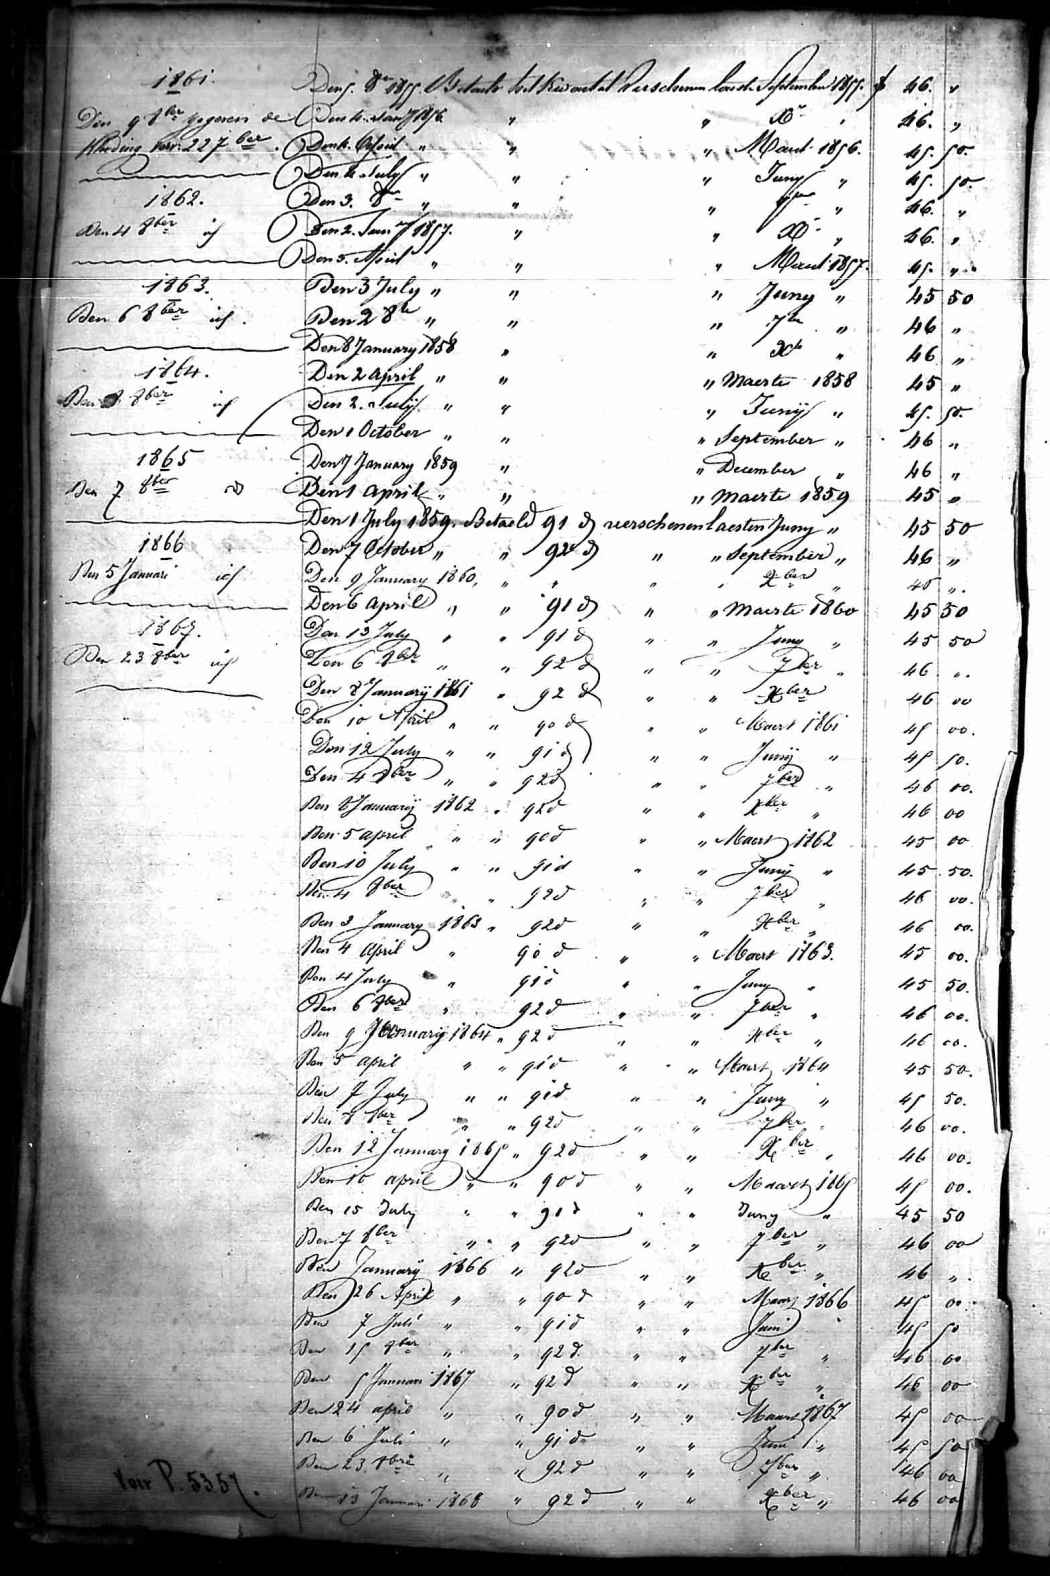 1861.
Den 9 8ber gegeven de
kleeding van 22 7ber.
1862.
den 4 8ber id
1863.
Den 6 8ber id.
1864.
Den 8ber id
1865
Den 7 8ber id
1866
Den 5 Januari id
1867.
Den 23 8ber id
Den 5. 8er 1855 Betaelt het kwartal verschenen laest. September 1855. f 46. "
Den 4. Jany 1856 " " Xr " 46. "
Den 4. April " " " Maert 1856. 45. 50.
Den 4. July " " " Juny " 45. 50.
Den 3. 8er " " " 7er " 46. "
Den 2. Jany 1857. " " Xr " 46. "
Den 5. April " " " Maert 1857. 45. "
Den 3 July " " " Juny " 45 50
Den 2 8er " " " 7er " 46 "
Den 8 January 1858 " " Xr " 46 "
Den 2 April " " " Maerte 1858 45 "
Den 2. July " " " Juny " 45. 50.
Den 1 October " " " September " 46 "
Den 7 January 1859 " " December " 46 "
Den 1 April " " " maerte 1859 45 "
Den 1 July 1859. Betaeld 91 d verschenen laesten Juny " 45 50
Den 7 October " " 92 d " " September " 46 "
Den 9 January 1860, " " " " Xber " 46 "
Den 6 April " " 91 d " " Maerte 1860 45 50
Den 13 July " " 91 d " " Juny " 45 50
Den 6 8ber " " 92 d " " 7ber " 46 "
Den 8 Januarÿ 1861 " 92 d " " Xber 46 00
Den 10 April " " 90 d " " Maert 1861 45 00.
Den 12 July " " 91 d " " Junÿ " 45 50.
Den 4 8ber " " 92 d " " 7ber " 46 00.
Den 8 Januarÿ 1862 " 92 d " " Xber " 46 00
Den 5 april " " 90 d " " Maert 1862 45 00
Den 10 July " " 91 d " " Junÿ " 45 50.
Den 4 8ber " " 92 d " " 7ber " 46 00.
Den 3 January 1863 " 92 d " " Xber " 46 00.
Den 4 april " 90 d " " Maert 1863. 45 00.
Den 4 July " 91 d " " Juny " 45 50.
Den 6 8ber " 92 d " " 7ber " 46 00.
Den 9 January 1864 " 92 d " " Xber " 46 00.
Den 5 april " " 91 d " " Maert 1864 45 50.
Den 7 July " " 91 d " " Juny " 45 50.
Den 8 8ber " " 92 d " " 7ber " 46 00.
Den 12 January 1865 " 92 d " " Xber " 46 00.
Den 10 april " " 90 d " " Maert 1865 45 00.
Den 15 July " " 91 d " " Juny " 45 50
Den 7 8ber " " 92 d " " 7ber " 46 00
Den Januarÿ 1866 " 92 d " " Xber " 46 "
Den 26 April " " 90 d " " Maart 1866 45 00
Den 7 Juli " " 91 d " " Juni " 45 50
Den 15 8ber " " 92 d " " 7ber " 46 00
Den 5 Januari 1867 " 92 d " " Xber " 46 00
Den 24 april " " 90 d " " Maart 1867 45 00
Den 6 Juli " " 91 d " " Juni " 45 50
Den 23. 8bre " " 92 d " " 7ber " 46 00
Den 13 Januari 1868 " 92 d " " Xber " 46 00
Voir P. 5357.